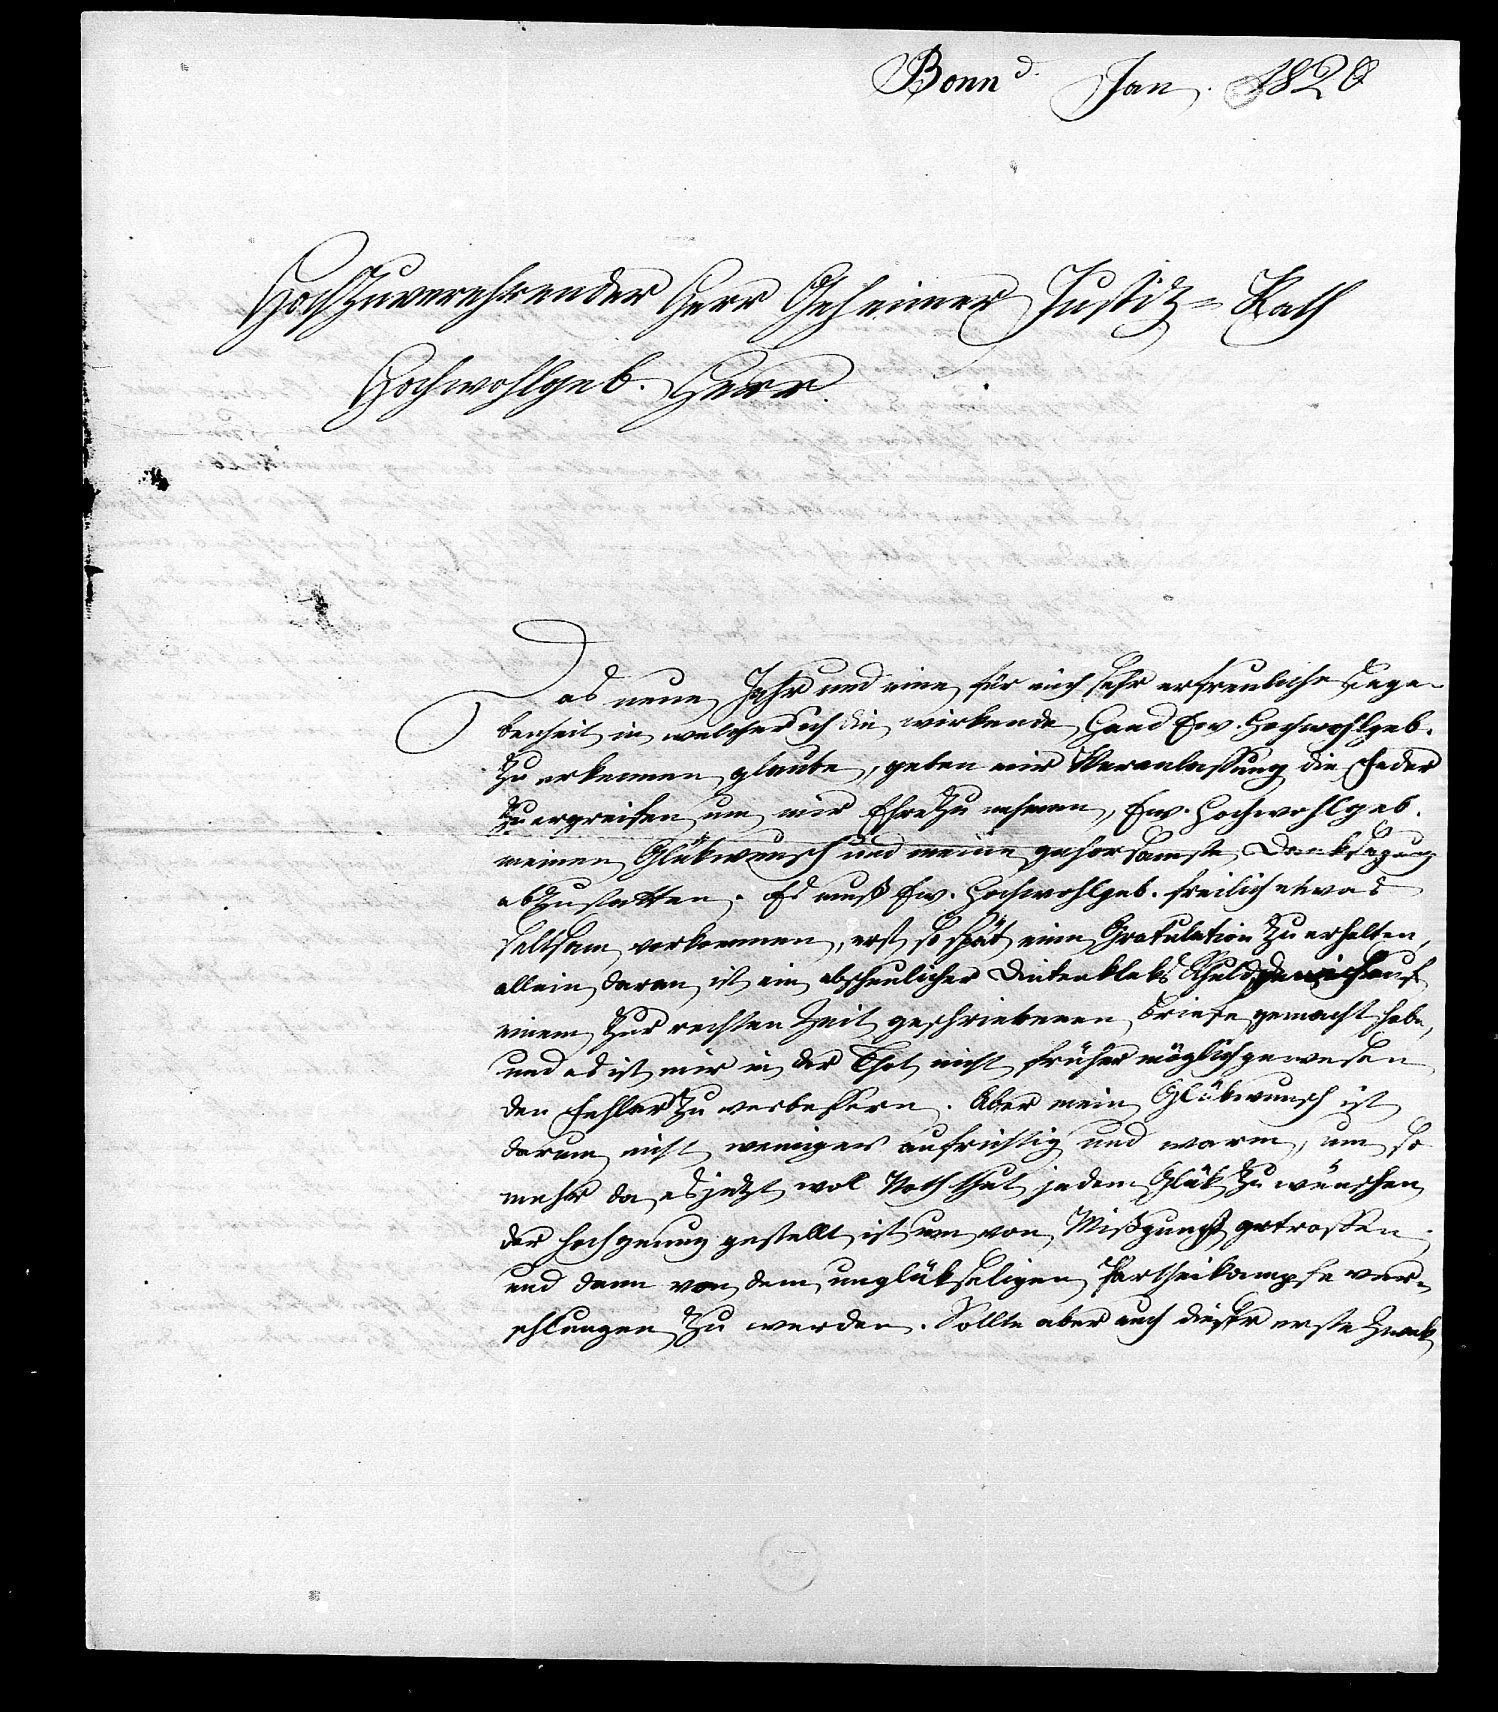 Bonn d. Jan. 1820
Hochzuverehrender Herr Geheimer Justitz-Rath
Hochwohlgeb. Herr.
Das neue Jahr und eine für mich sehr erfreuliche Bege-
benheit in welcher ich die wirkende Hand Ew. Hochwohlgeb.
zu erkennen glaube, geben mir Veranlaßung die Feder
zu ergreifen um mir Ehre zu nehmen, Ew. Hochwohlgeb.
meinen Glükwunsch und meine gehorsamste Danksagung
abzustatten. Es muß Ew. Hochwohlgeb. freilich etwas
seltsam vorkommen, erst so spät eine Gratulation zu erhalten,
allein daran ist ein abscheulicher Dintenkleks Schuld den ich auf
einem zur rechten Zeit geschriebenen Briefe gemacht habe,
und es ist mir in der That nicht früher möglich gewesen
den Fehler zu verbeßern. Aber mein Glükwunsch ist
darum nicht weniger aufrichtig und warm, um so
mehr da es jetzt wol Noth thut jedem Glük zu wünschen
der hoch genug gestellt ist um von Mißgunst getroffen
und dann von dem unglükseligen Partheikampfe ver-
schlungen zu werden. Sollte aber auch dieser erste Zwek